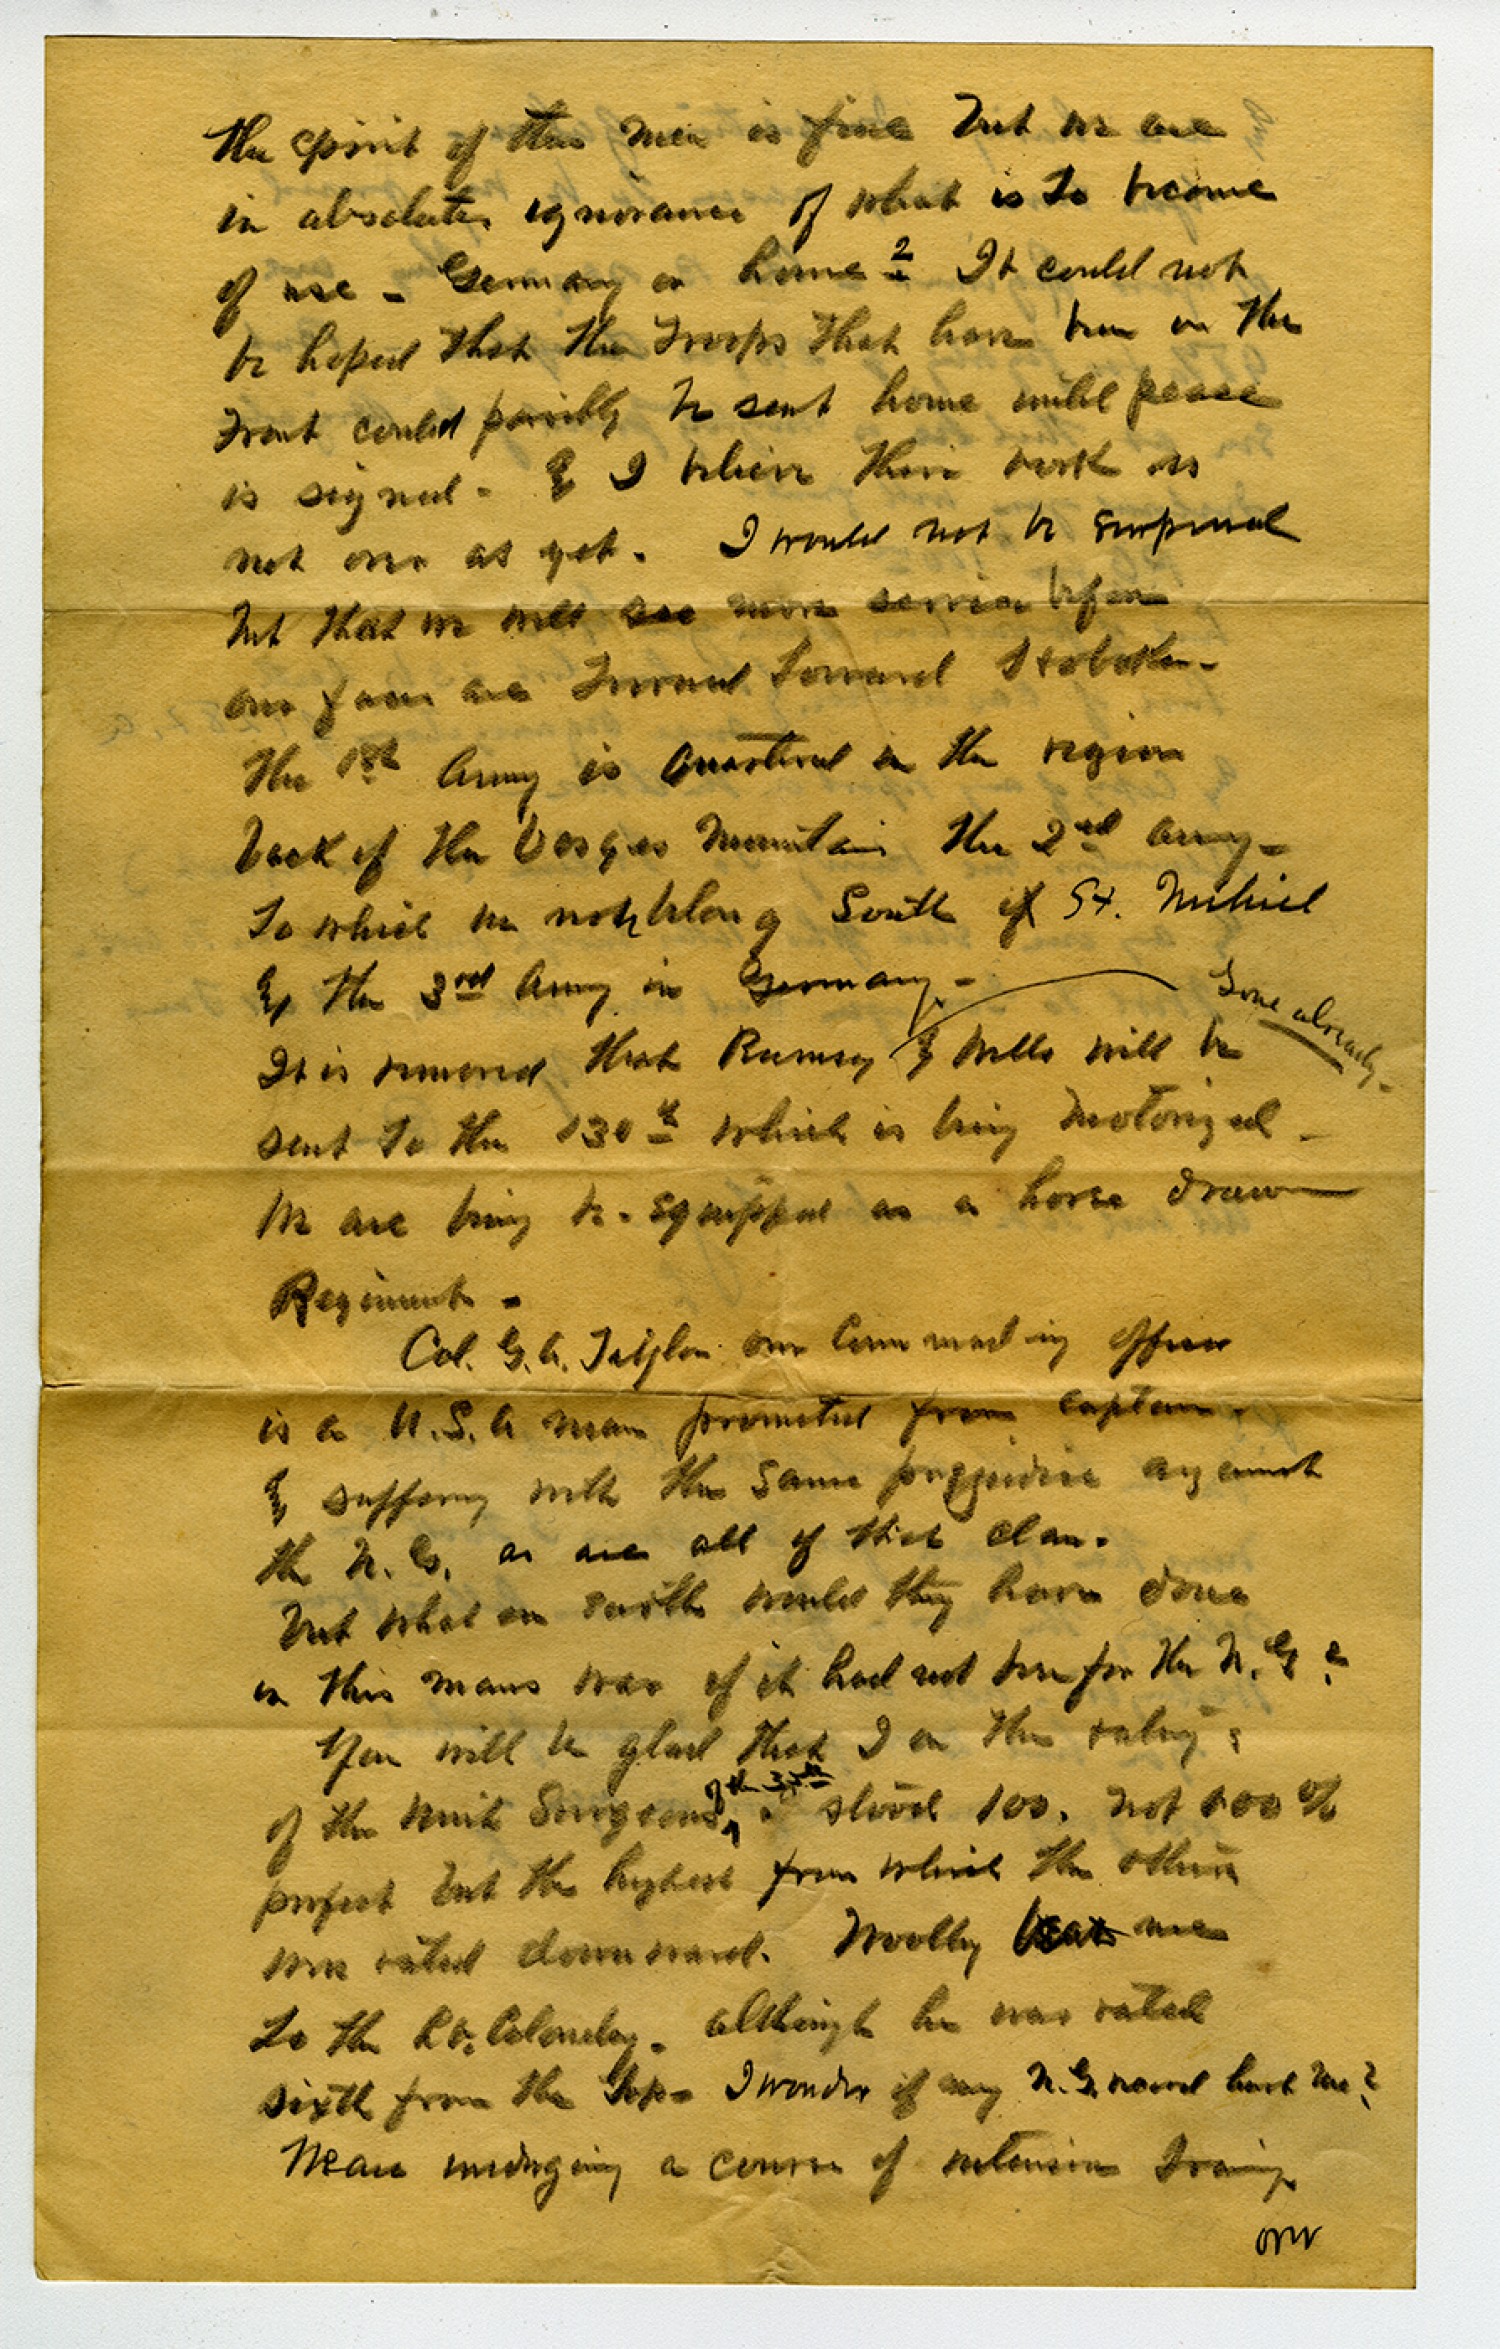 The spirit of the men is fine but we are
in absolute ignorance of what is to become
of use - Germany or home? It could not
be hoped that the troops that have been on the
front could possibly be sent home until peace
is signed - & I believe their work is
not over as yet. I would not be surprised
but that we will see more service before
our faces are turned toward Hoboken -
The 1st Army is quartered in the region
back of the Vosges Mountain the 2nd Army -
to which we now belong South of St. Mihiel
& the 3rd Army in Germany -
Gone already -
It is rumored that Rumsey & Wells will be
sent to the 130th which is being motorized -
We are being re-equipped as a horse drawn
Regiment -
Col. G.A. our Commanding officer
is a U.S.A man promoted from captain -
& suffering with the same prejudice against
the N.G. as are all of that clan.
But what on earth would they have done
in this mans war if it had not been for the N.G?
You will be glad that I on the rating
of the unit Surgeons, of the 35th I stood 100. not 100%
perfect but the highest from which the others
were rated downward. Woolley beat me
to the Lt. Colonelcy - although he was rated
sixth from the top - I wonder if my N.G. record hurt me?
We are undergoing a course of intensive training
over